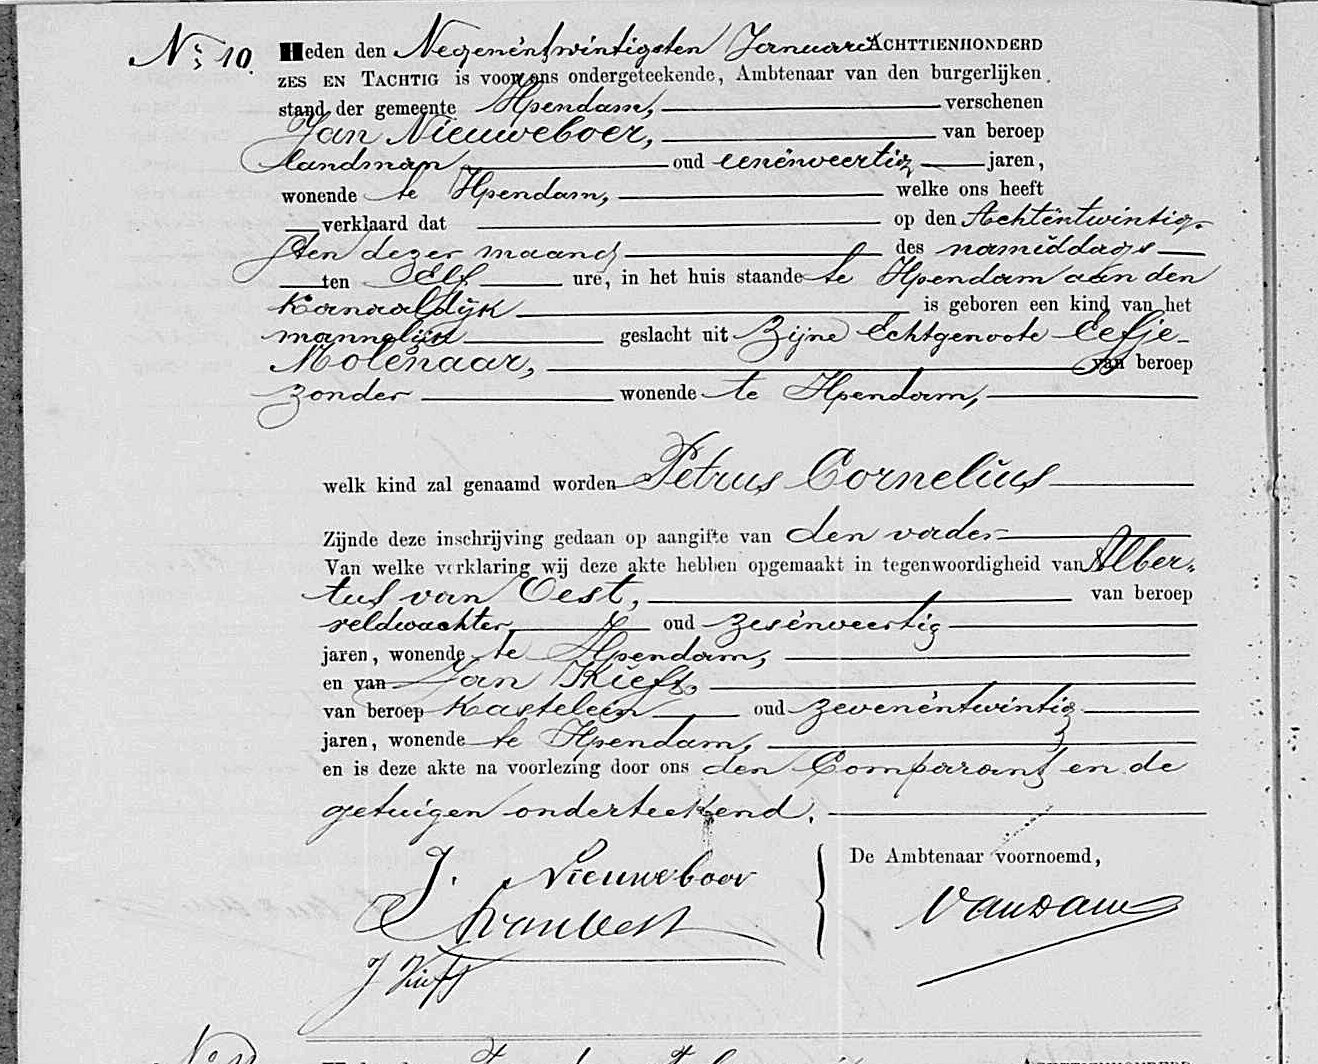 No 10. Heden den Negenëntwintigsten Januari ACHTTIENHONDERD
ZES EN TACHTIG is voor ons ondergeteekende, Ambtenaar van den burgerlijken
stand der gemeente Ilpendam, verschenen
Jan Nieuweboer, van beroep
landman, oud eenënveertig jaren,
wonende te Ilpendam, welke ons heeft
verklaard dat op den Achtëntwintig-
sten dezer maand des namiddags
ten Elf ure, in het huis staande te Ilpendam aan den
Kanaaldijk is geboren een kind van het
mannelijk geslacht uit Zijne Echtgenoote Eefje
Molenaar, van beroep
zonder wonende te Ilpendam,
welk kind zal genaamd worden Petrus Cornelius
Zijnde deze inschrijving gedaan op aangifte van den vader
Van welke verklaring wij deze akte hebben opgemaakt in tegenwoordigheid van Alber-
tus van Oest, van beroep
veldwachter, oud zesënveertig
jaren, wonende te Ilpendam,
en van Jan Kieft,
van beroep Kastelein oud zevenëntwintig
jaren, wonende te Ilpendam,
en is deze akte na voorlezing door ons den Comparant en de
getuigen onderteekend.
J. Nieuweboer
De Ambtenaar voornoemd,
A van Oest
VanDam
J Kieft